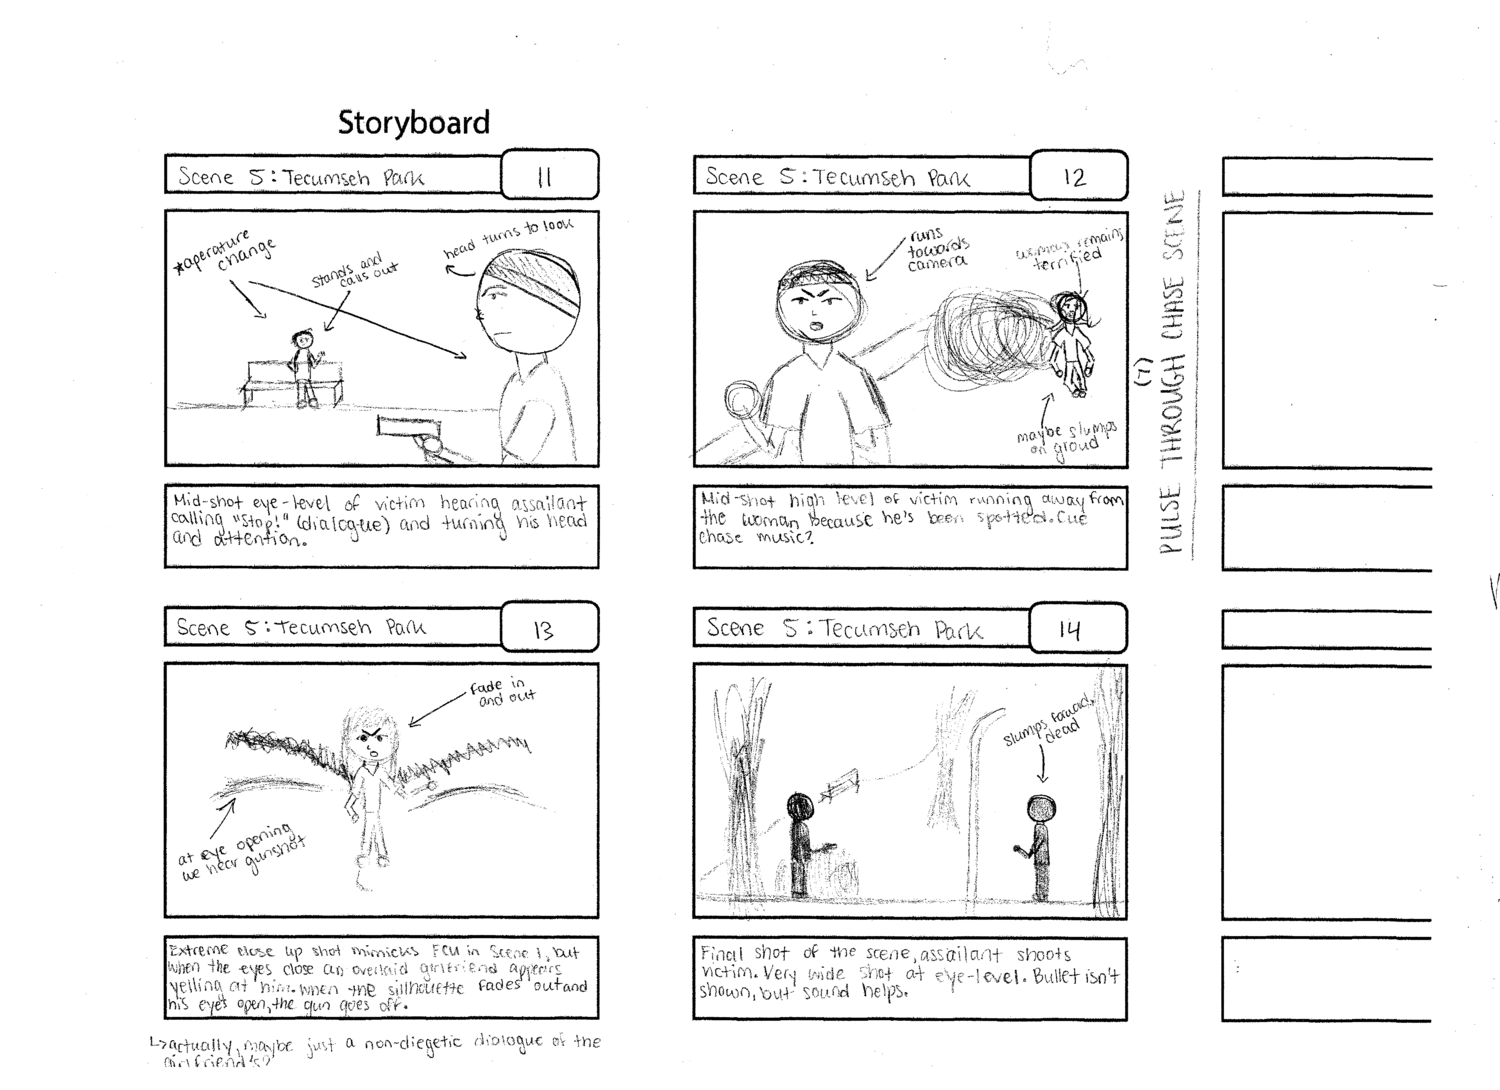 Storyboard
Scene 5: Tecumseh Park
11
*aperature
change
stands and
calls out
head turns to look
Mid-shot eye-level of victim hearing assailant
calling "stop!" (dialogue) and turning his head
and attention.
Scene 5: Tecumseh Park
12
runs
towards
camera
remains
terrified
maybe slumps
on groud
Mid-shot high level of victim running away from
the woman because he's been spotted. Cue
chase music?
PULSE THROUGH CHASE SCENE
(7)
Scene 5: Tecumseh Park
13
Fade in
and out
at eye opening
we hear gunshot
Extreme close up shot mimicks ECU in Scene 1, but
when the eyes close an overlaid girlfriend appears
yelling at him. when the sillhouette fades out and
his eyes open, the gun goes off.
↳ actually, maybe just a non-diegetic dialogue of the
girlfriend's?
Scene 5: Tecumseh Park
14
slumps forward,
dead
Final shot of the scene, assailant shoots
victim. Very wide shot at eye-level. Bullet isn't
shown, but sound helps.